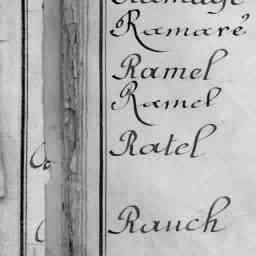 Ramaré
Ramel
Ramel
Ratel
Rauch